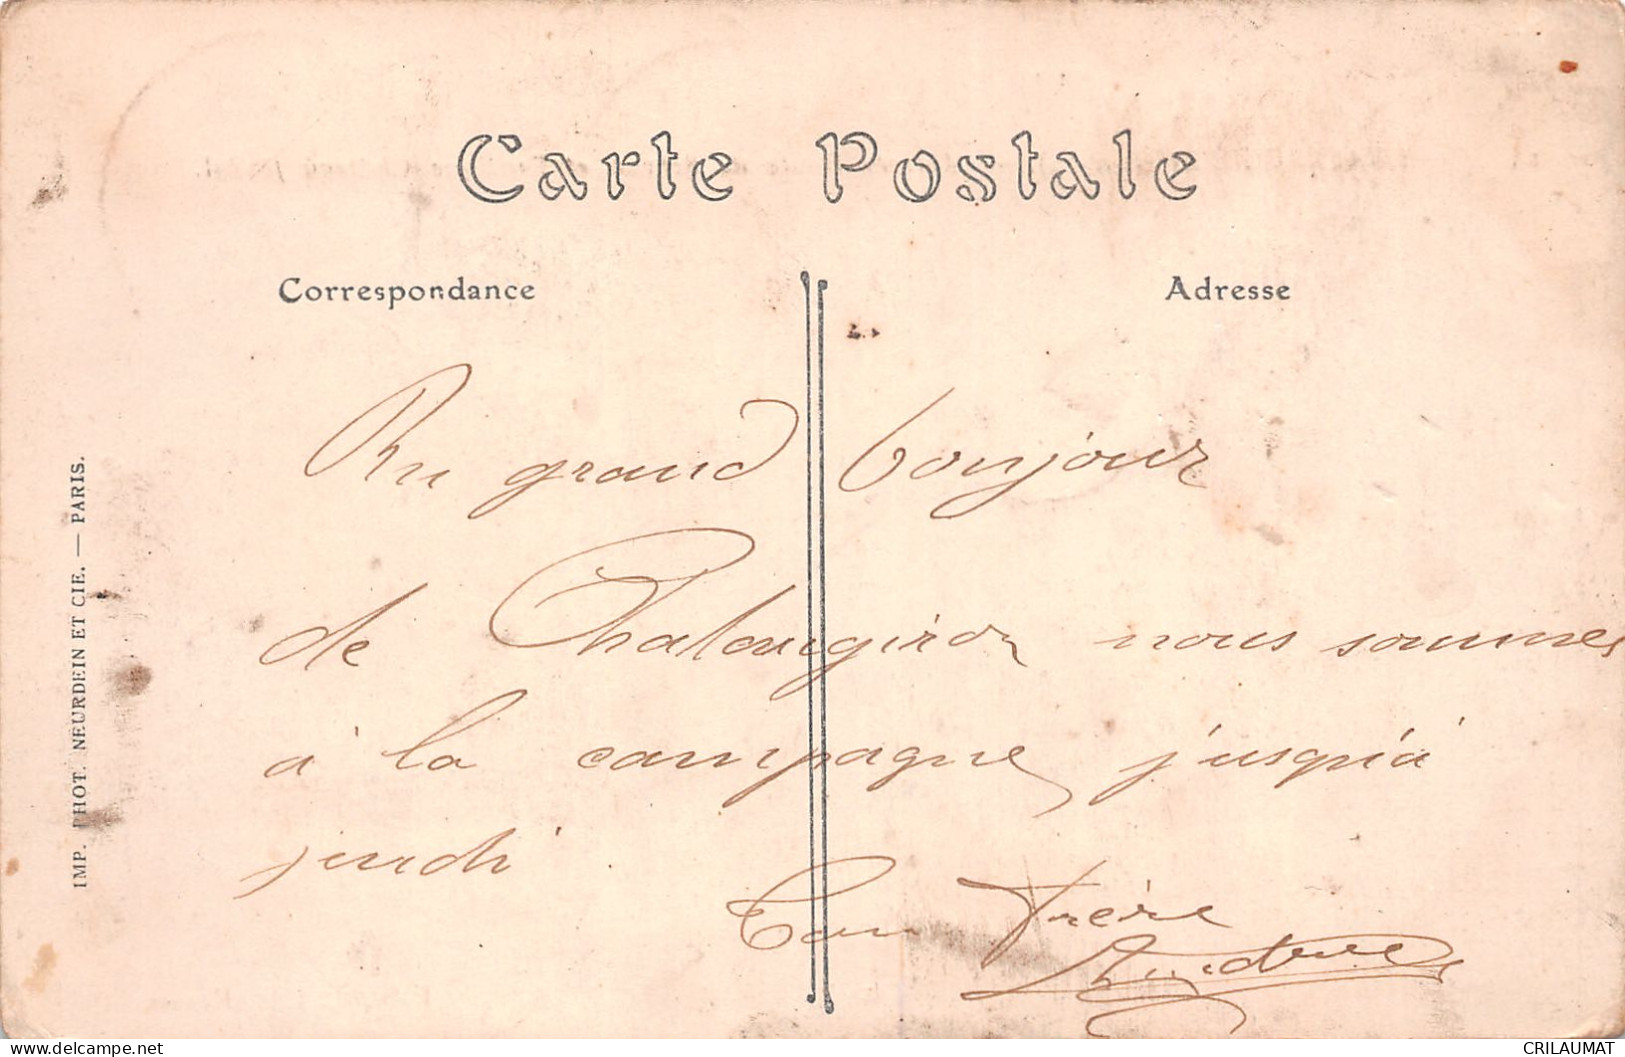 Carte Postale
Correspondance
Adresse
Un grand bonjour
de nous sommes
à la campagne jusqu'à
jeudi
Ton frère
IMP. PHOT. NEURDEIN ET CIE. — PARIS.
CRILAUMAT